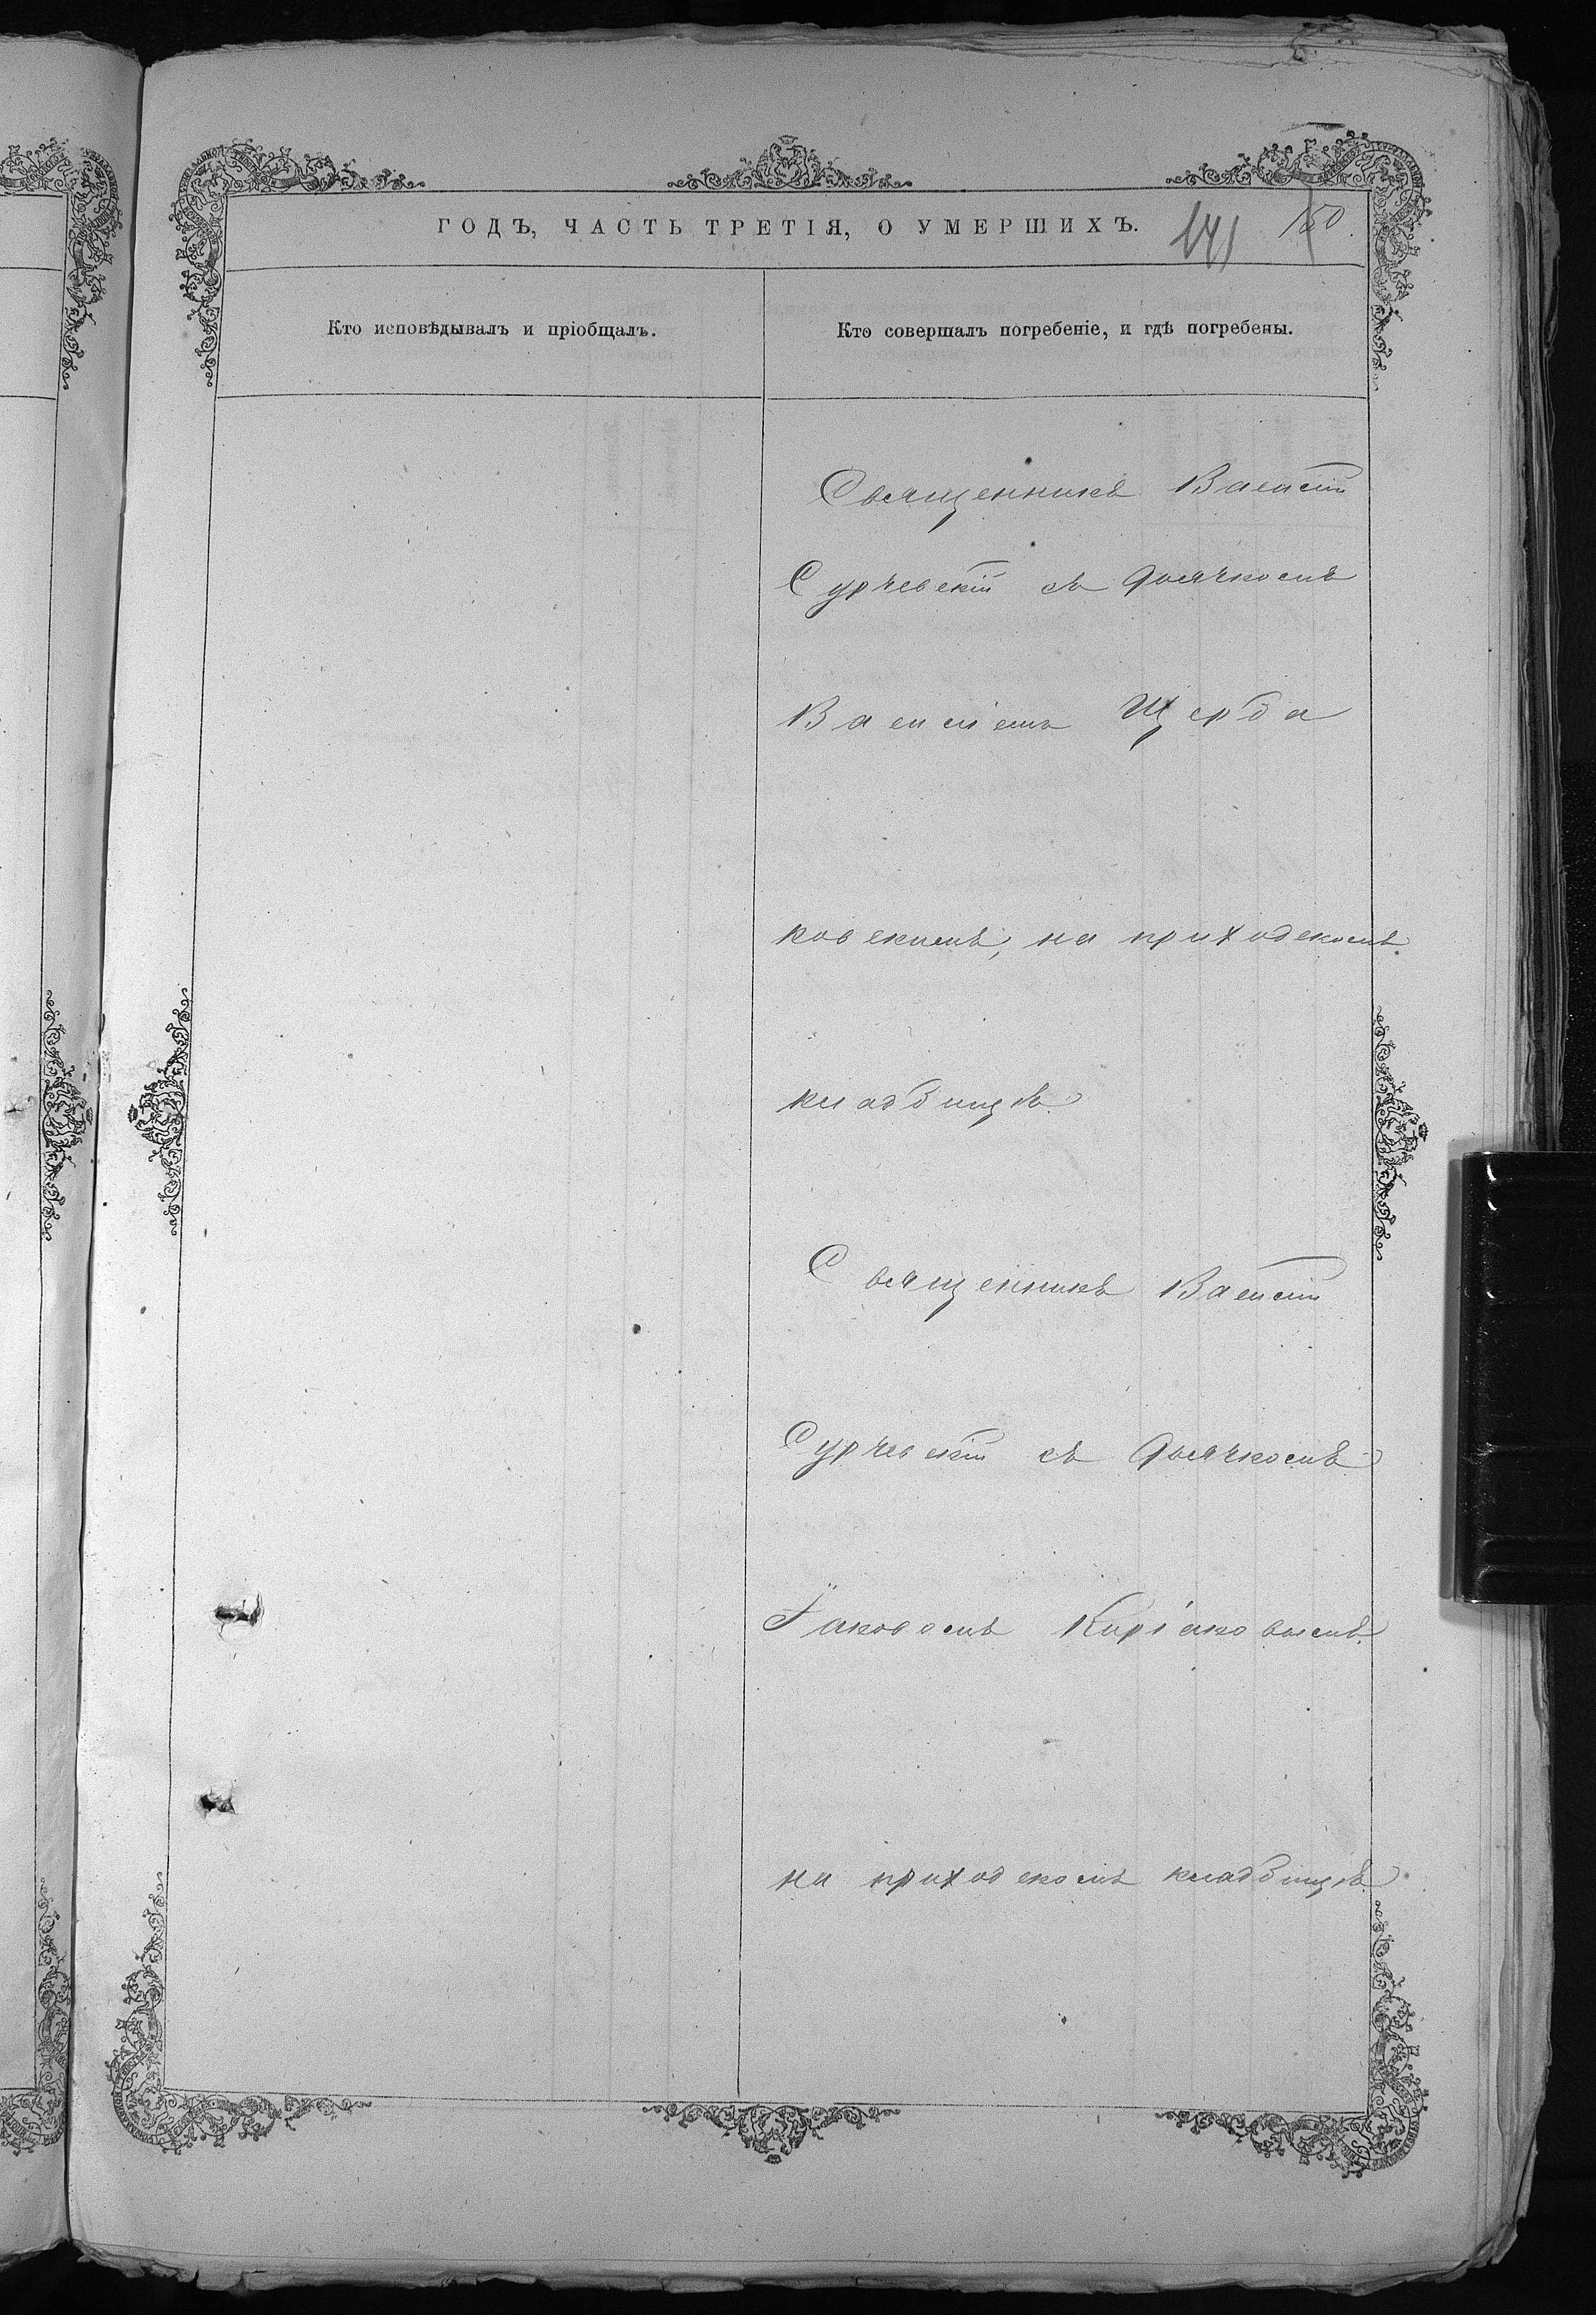 ГОДЪ, ЧАСТЬ ТРЕТІЯ, О УМЕРШИХЪ.
141
150.
Кто исповѣдывалъ и пріобщалъ.
Кто совершалъ погребеніе, и гдѣ погребены.
Священникъ Василій
Сурчевскій съ дьячкомъ
Василіемъ Щерба
ковскимъ, на приходскомъ
кладбищѣ.
Священникъ Василій
Сурчевскій съ дьячкомъ
Іаковомъ Киріаковымъ
на приходскомъ кладбищѣ.